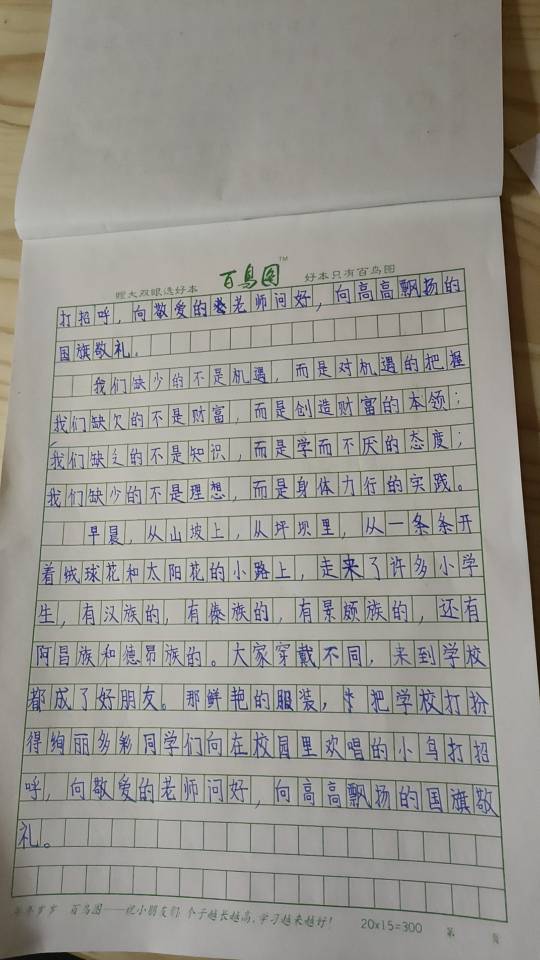 瞪大双眼选好本 百鸟图™ 好本只有百鸟图
打招呼，向敬爱的老师问好，向高高飘扬的
国旗敬礼。
我们缺少的不是机遇，而是对机遇的把握
我们缺欠的不是财富，而是创造财富的本领；
我们缺乏的不是知识，而是学而不厌的态度；
我们缺少的不是理想，而是身体力行的实践。
早晨，从山坡上，从坪坝里，从一条条开
着绒球花和太阳花的小路上，走来了许多小学
生，有汉族的，有傣族的，有景颇族的，还有
阿昌族和德昂族的。大家穿戴不同，来到学校
都成了好朋友。那鲜艳的服装，把学校打扮
得绚丽多彩同学们向在校园里欢唱的小鸟打招
呼，向敬爱的老师问好，向高高飘扬的国旗敬
礼。
年年岁岁 百鸟图——祝小朋友们：个子越长越高，学习越来越好！ 20x15=300 第 页